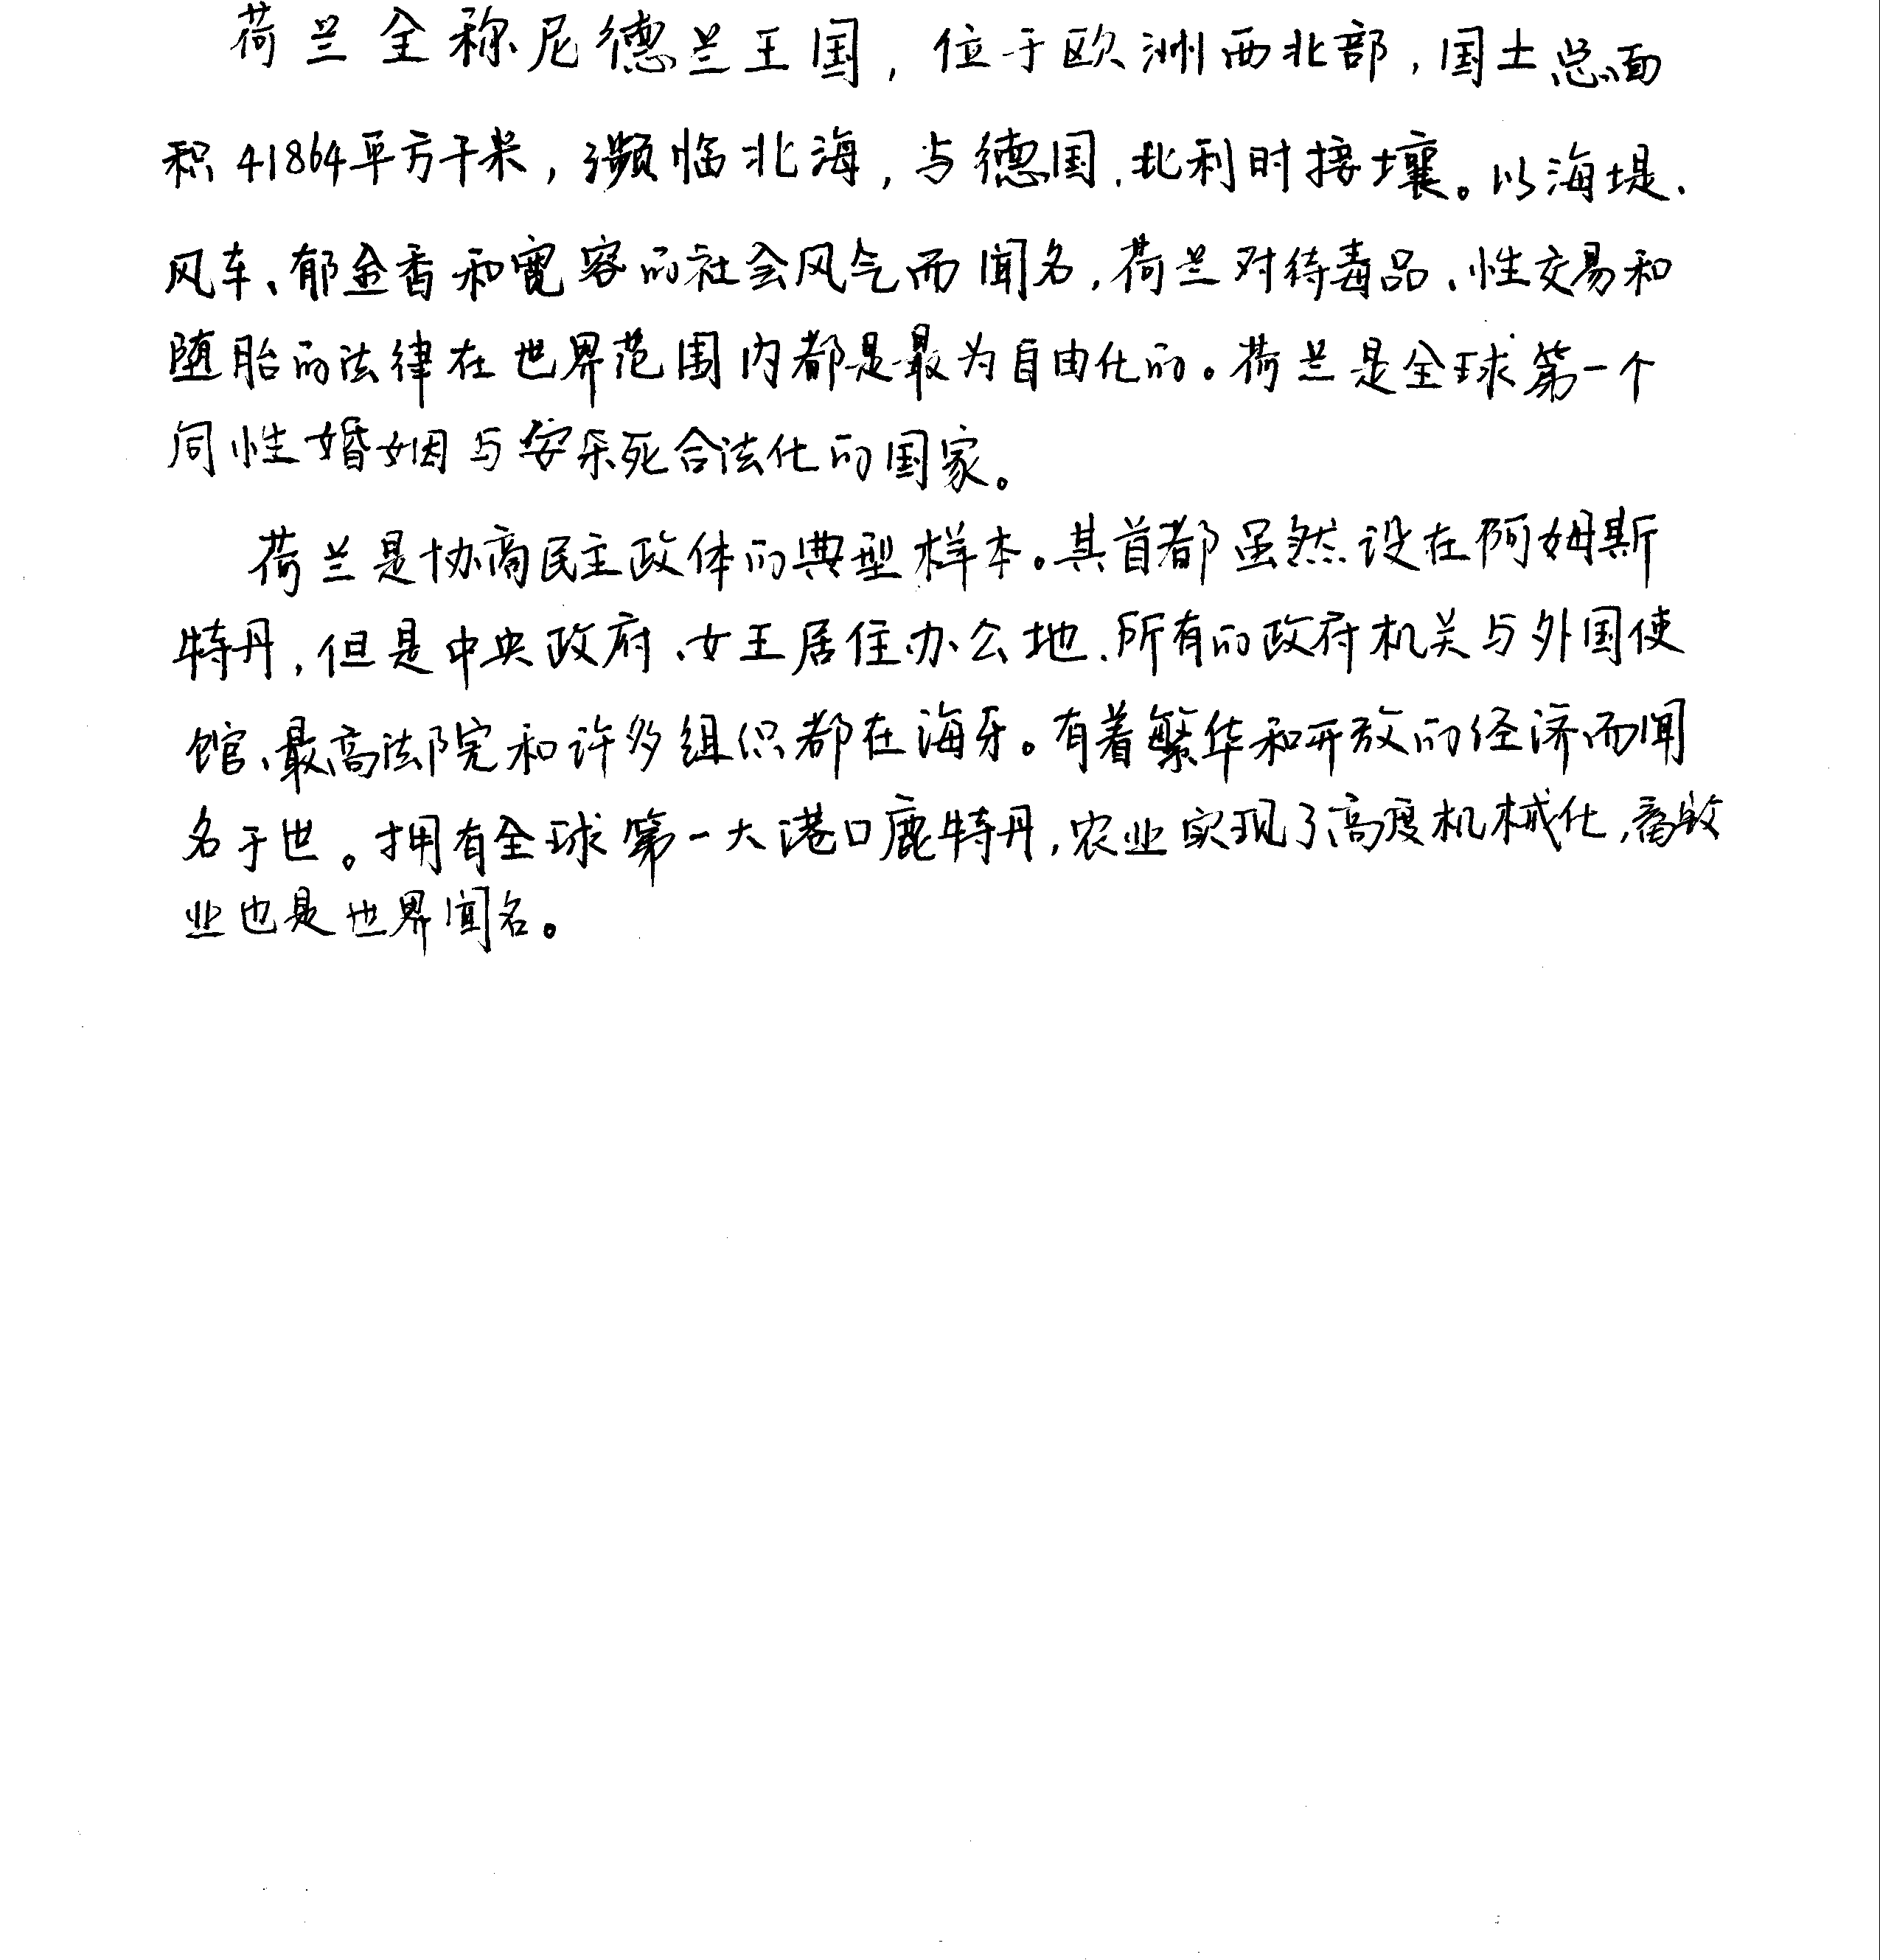 荷兰全称尼德兰王国，位于欧洲西北部，国土总面
积41864平方千米，濒临北海，与德国、比利时接壤。以海堤、
风车、郁金香和宽容的社会风气而闻名，荷兰对待毒品、性交易和
堕胎的法律在世界范围内都是最为自由化的。荷兰是全球第一个
同性婚姻与安乐死合法化的国家。
荷兰是协商民主政体的典型样本。其首都虽然设在阿姆斯
特丹，但是中央政府、女王居住办公地、所有的政府机关与外国使
馆、最高法院和许多组织都在海牙。有着繁华和开放的经济而闻
名于世。拥有全球第一大港口鹿特丹，农业实现了高度机械化，畜牧
业也是世界闻名。